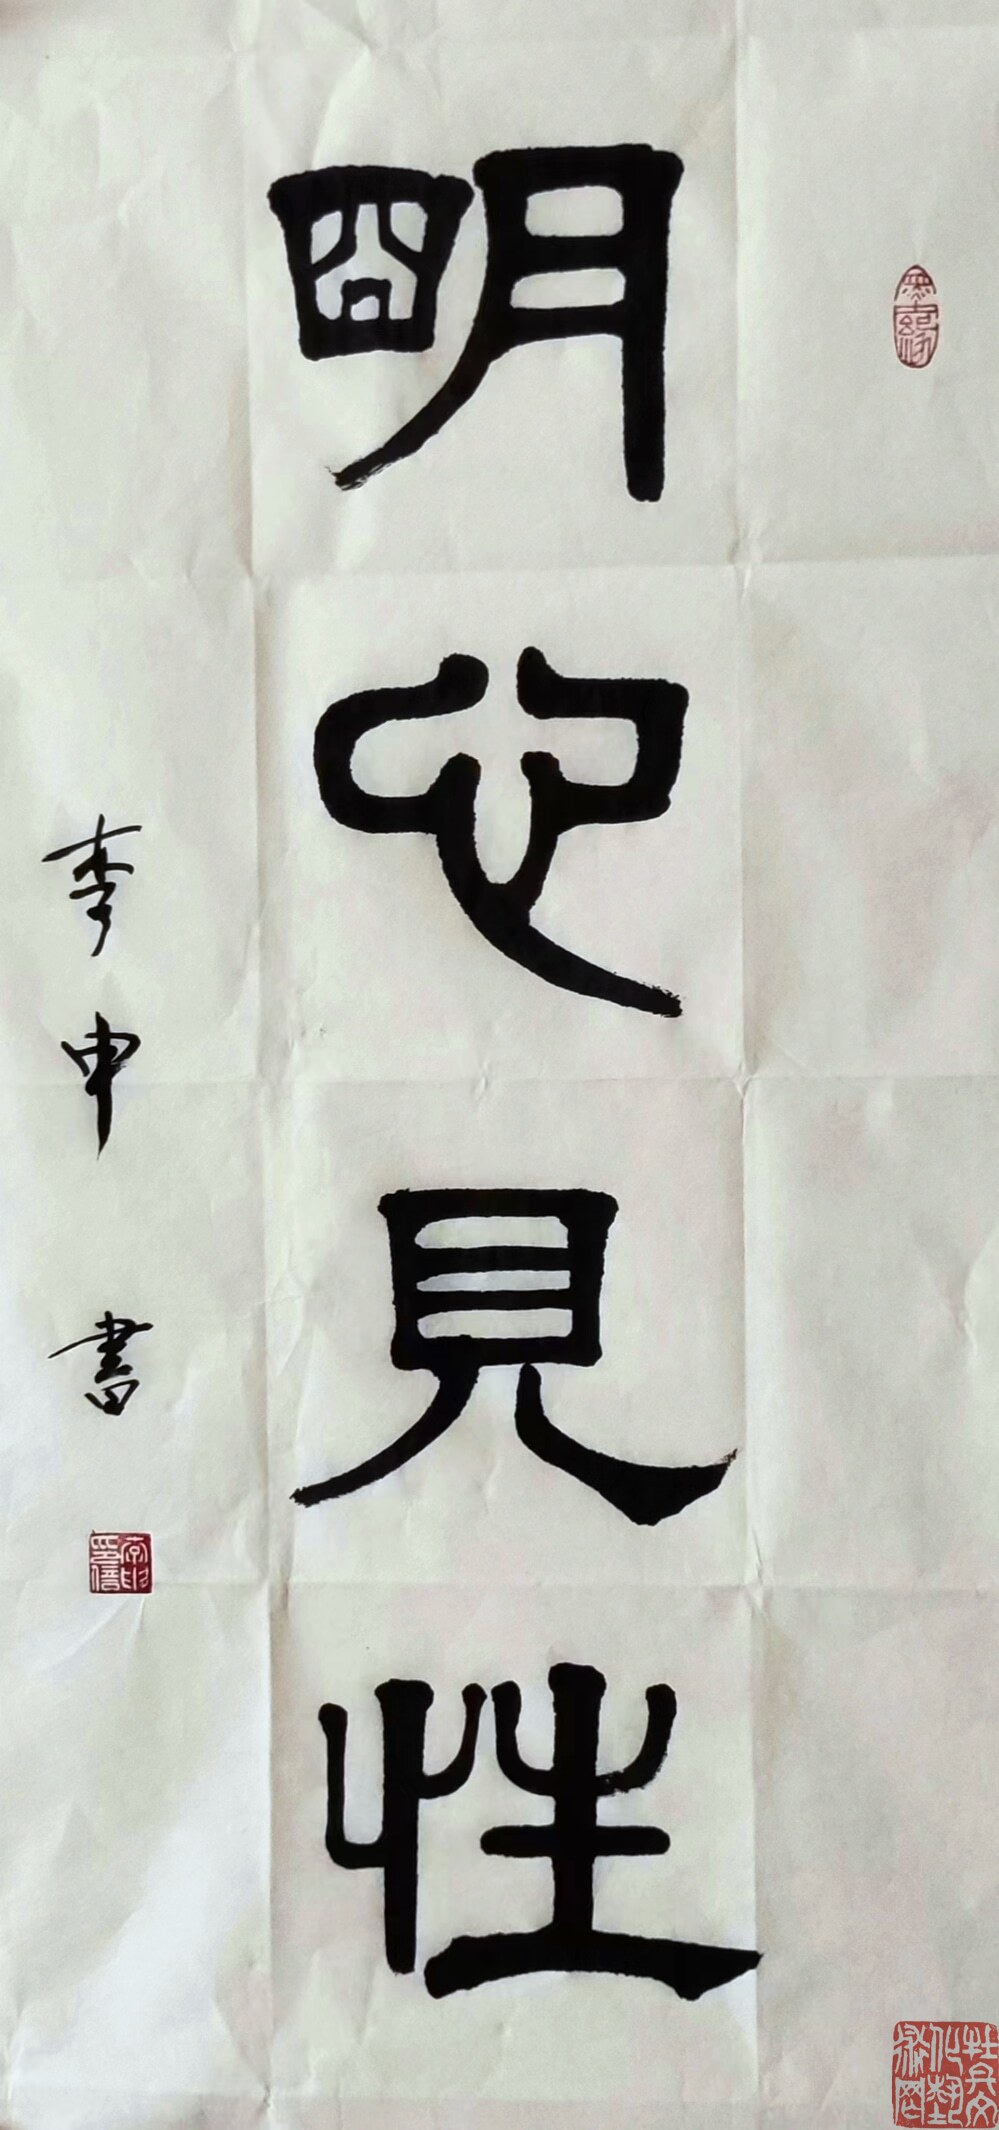 明心見性
李申書